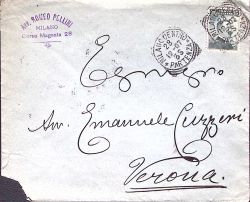 AVV. ROMEO PELLINI
MILANO
Corso Magenta 28
MILANO CENTRO
PARTENZA
Egregio
Avv. Emanuele Cuzzeri
Verona.